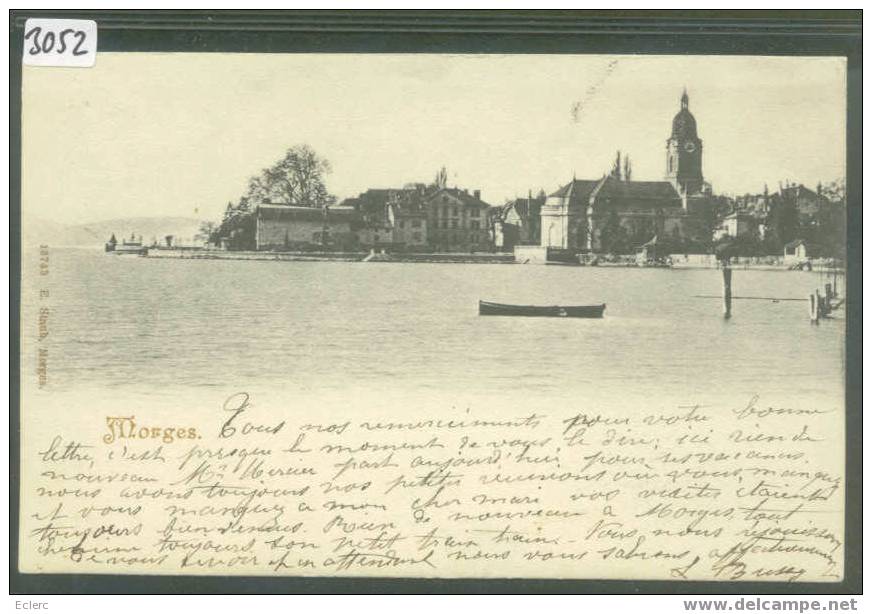 3052
13743 E. Staub, Morges.
Morges.
Tous nos remerciements pour votre bonne
lettre, c'est presque le moment de vous le dire; ici rien de
nouveau Mr. Mercier part aujourd'hui pour ses vacances,
nous avons toujours nos petites réunions où vous manquez
et vous manquez a mon cher mari vos visites étaient
toujours bienvenues. Rien de nouveau à Morges, tout
chemine toujours son petit train train. Vous nous réjouissons
de vous revoir et en attendant nous vous saluons affectueusement
Eclerc
www.delcampe.net